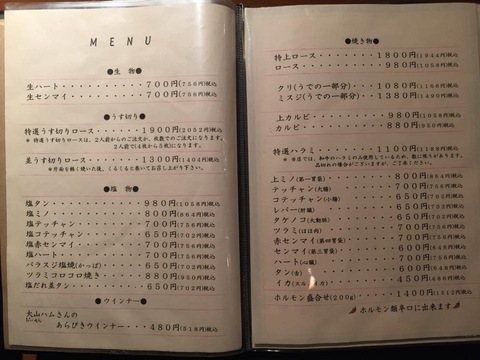 MENU
●生 物●
生ハート・・・・・・・・・・700円(756円)税込
生センマイ・・・・・・・・・700円(756円)税込
●うす切り●
特選うす切りロース・・・・1900円(2052円)税込
＊ 特選うす切りロースは、2人前からのご注文か、枚数でのご注文になります。
2人前で(4枚から5枚)になります。
並うす切りロース・・・・・1300円(1404円)税込
＊片面を軽く焼いた後、くるくると巻いてお召し上がり下さい。
●塩 物●
塩タン・・・・・・・・・・980円(1058円)税込
塩ミノ・・・・・・・・・・800円(864円)税込
塩テッチャン・・・・・・・650円(702円)税込
塩コテッチャン・・・・・・650円(702円)税込
塩赤センマイ・・・・・・・650円(702円)税込
塩ハート・・・・・・・・・650円(702円)税込
バラスジ塩焼(かっぱ)・・・650円(702円)税込
ツラミコロコロ焼き・・・・880円(950円)税込
塩だれ並タン・・・・・・・650円(702円)税込
●ウインナー●
大山ハムさんの
あらびきウインナー・・・480円(518円)税込
●焼き物●
特上ロース・・・・・・・1800円(1944円)税込
ロース・・・・・・・・・980円(1058円)税込
クリ(うでの一部分)・・・1080円(1166円)税込
ミスジ(うでの一部分)・・1380円(1490円)税込
上カルビ・・・・・・・・980円(1058円)税込
カルビ・・・・・・・・・880円(950円)税込
特選ハラミ・・・・・・・1100円(1188円)税込
＊当店では、和牛のハラミのみ使用しているため、数に限りがあります。
品切れの場合がございますが、ご了承ください。
上ミノ(第一胃袋)・・・・800円(864円)税込
テッチャン(大腸)・・・・650円(702円)税込
コテッチャン(小腸)・・・650円(702円)税込
レバー(肝臓)・・・・・・650円(702円)税込
タケノコ(大動脈)・・・・650円(702円)税込
ツラミ(ほほ肉)・・・・・700円(756円)税込
赤センマイ(第四胃袋)・・650円(702円)税込
センマイ(第三胃袋)・・・650円(702円)税込
ハート(心臓)・・・・・・650円(702円)税込
タン(舌)・・・・・・・・600円(648円)税込
イカ(スルイカ)・・・・・450円(486円)税込
ホルモン盛合せ(200g)・・・1400円(1512円)税込
ホルモン類辛口に出来ます